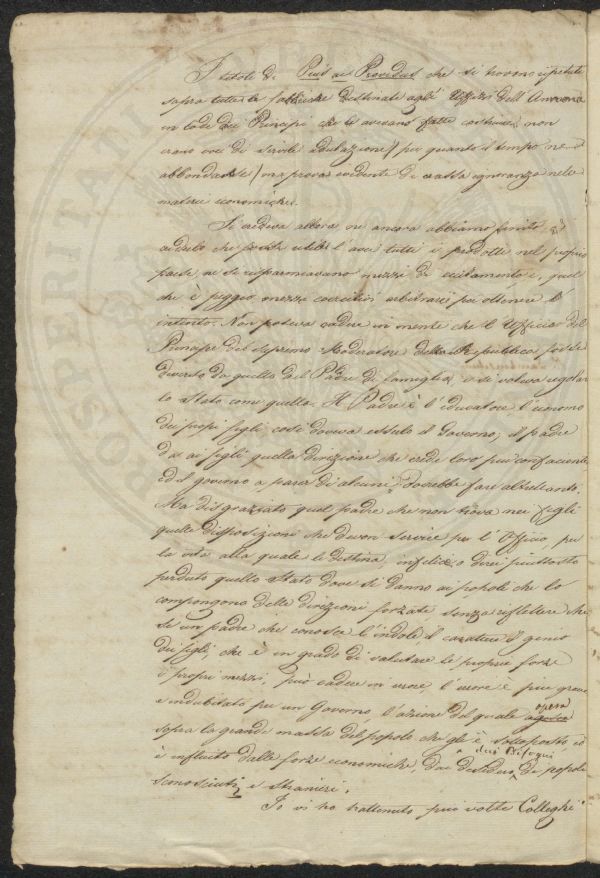 I titoli di Pius ac Providus che si trovano ripetuti
sopra tutte le fabbriche destinate agli Uffizi dell'Annona
in lode dei Principi che le avevano fatte costruire non
erano voci di servile adulazione / per quanto il tempo ne
abbondasse / ma prova evidente di crassa ignoranza nelle
materie economiche.
Si credeva allora ne ancora abbiamo finito di
crederlo che fosse utile l'aver tutti i prodotti nel proprio
paese ne si risparmiavano mezzi di eccitamento e, quel
che è peggio mezzi coercitivi arbitrari per ottenere l'
intento. Non poteva cadere in mente che l'Ufficio del
Principe del supremo Moderatore della Repubblica fosse
diverso da quello del Padre di famiglia e si voleva regolar
lo Stato come quello. Il Padre è l'educatore l'
dei propri figli così doveva esserlo il Governo; il padre
dà ai figli quella direzione che crede loro più confaciente
ed il governo a parer di alcuni dovrebbe fare altrettanto.
Ma disgraziato quel padre che non trova nei figli
quelle disposizioni che devon servire per l'Officio, per
la vita alla quale li destina, infelice o direi piuttosto
perduto quello Stato dove si danno ai popoli che lo
compongono delle direzioni forzate senza riflettere che
se un padre che conosce l'indole il carattere il genio
dei figli, che è in grado di valutare le proprie forze
i propri mezzi, può cadere in errore, l'errore è più grave
e indubitato per un Governo, l'azione del quale opera
sopra la grande massa del popolo che gli è sottoposto, ed
è influito dalle forze economiche, dai desideri, dai bisogni di popoli
sconosciuti e stranieri.
Io vi ho trattenuto più volte Colleghi